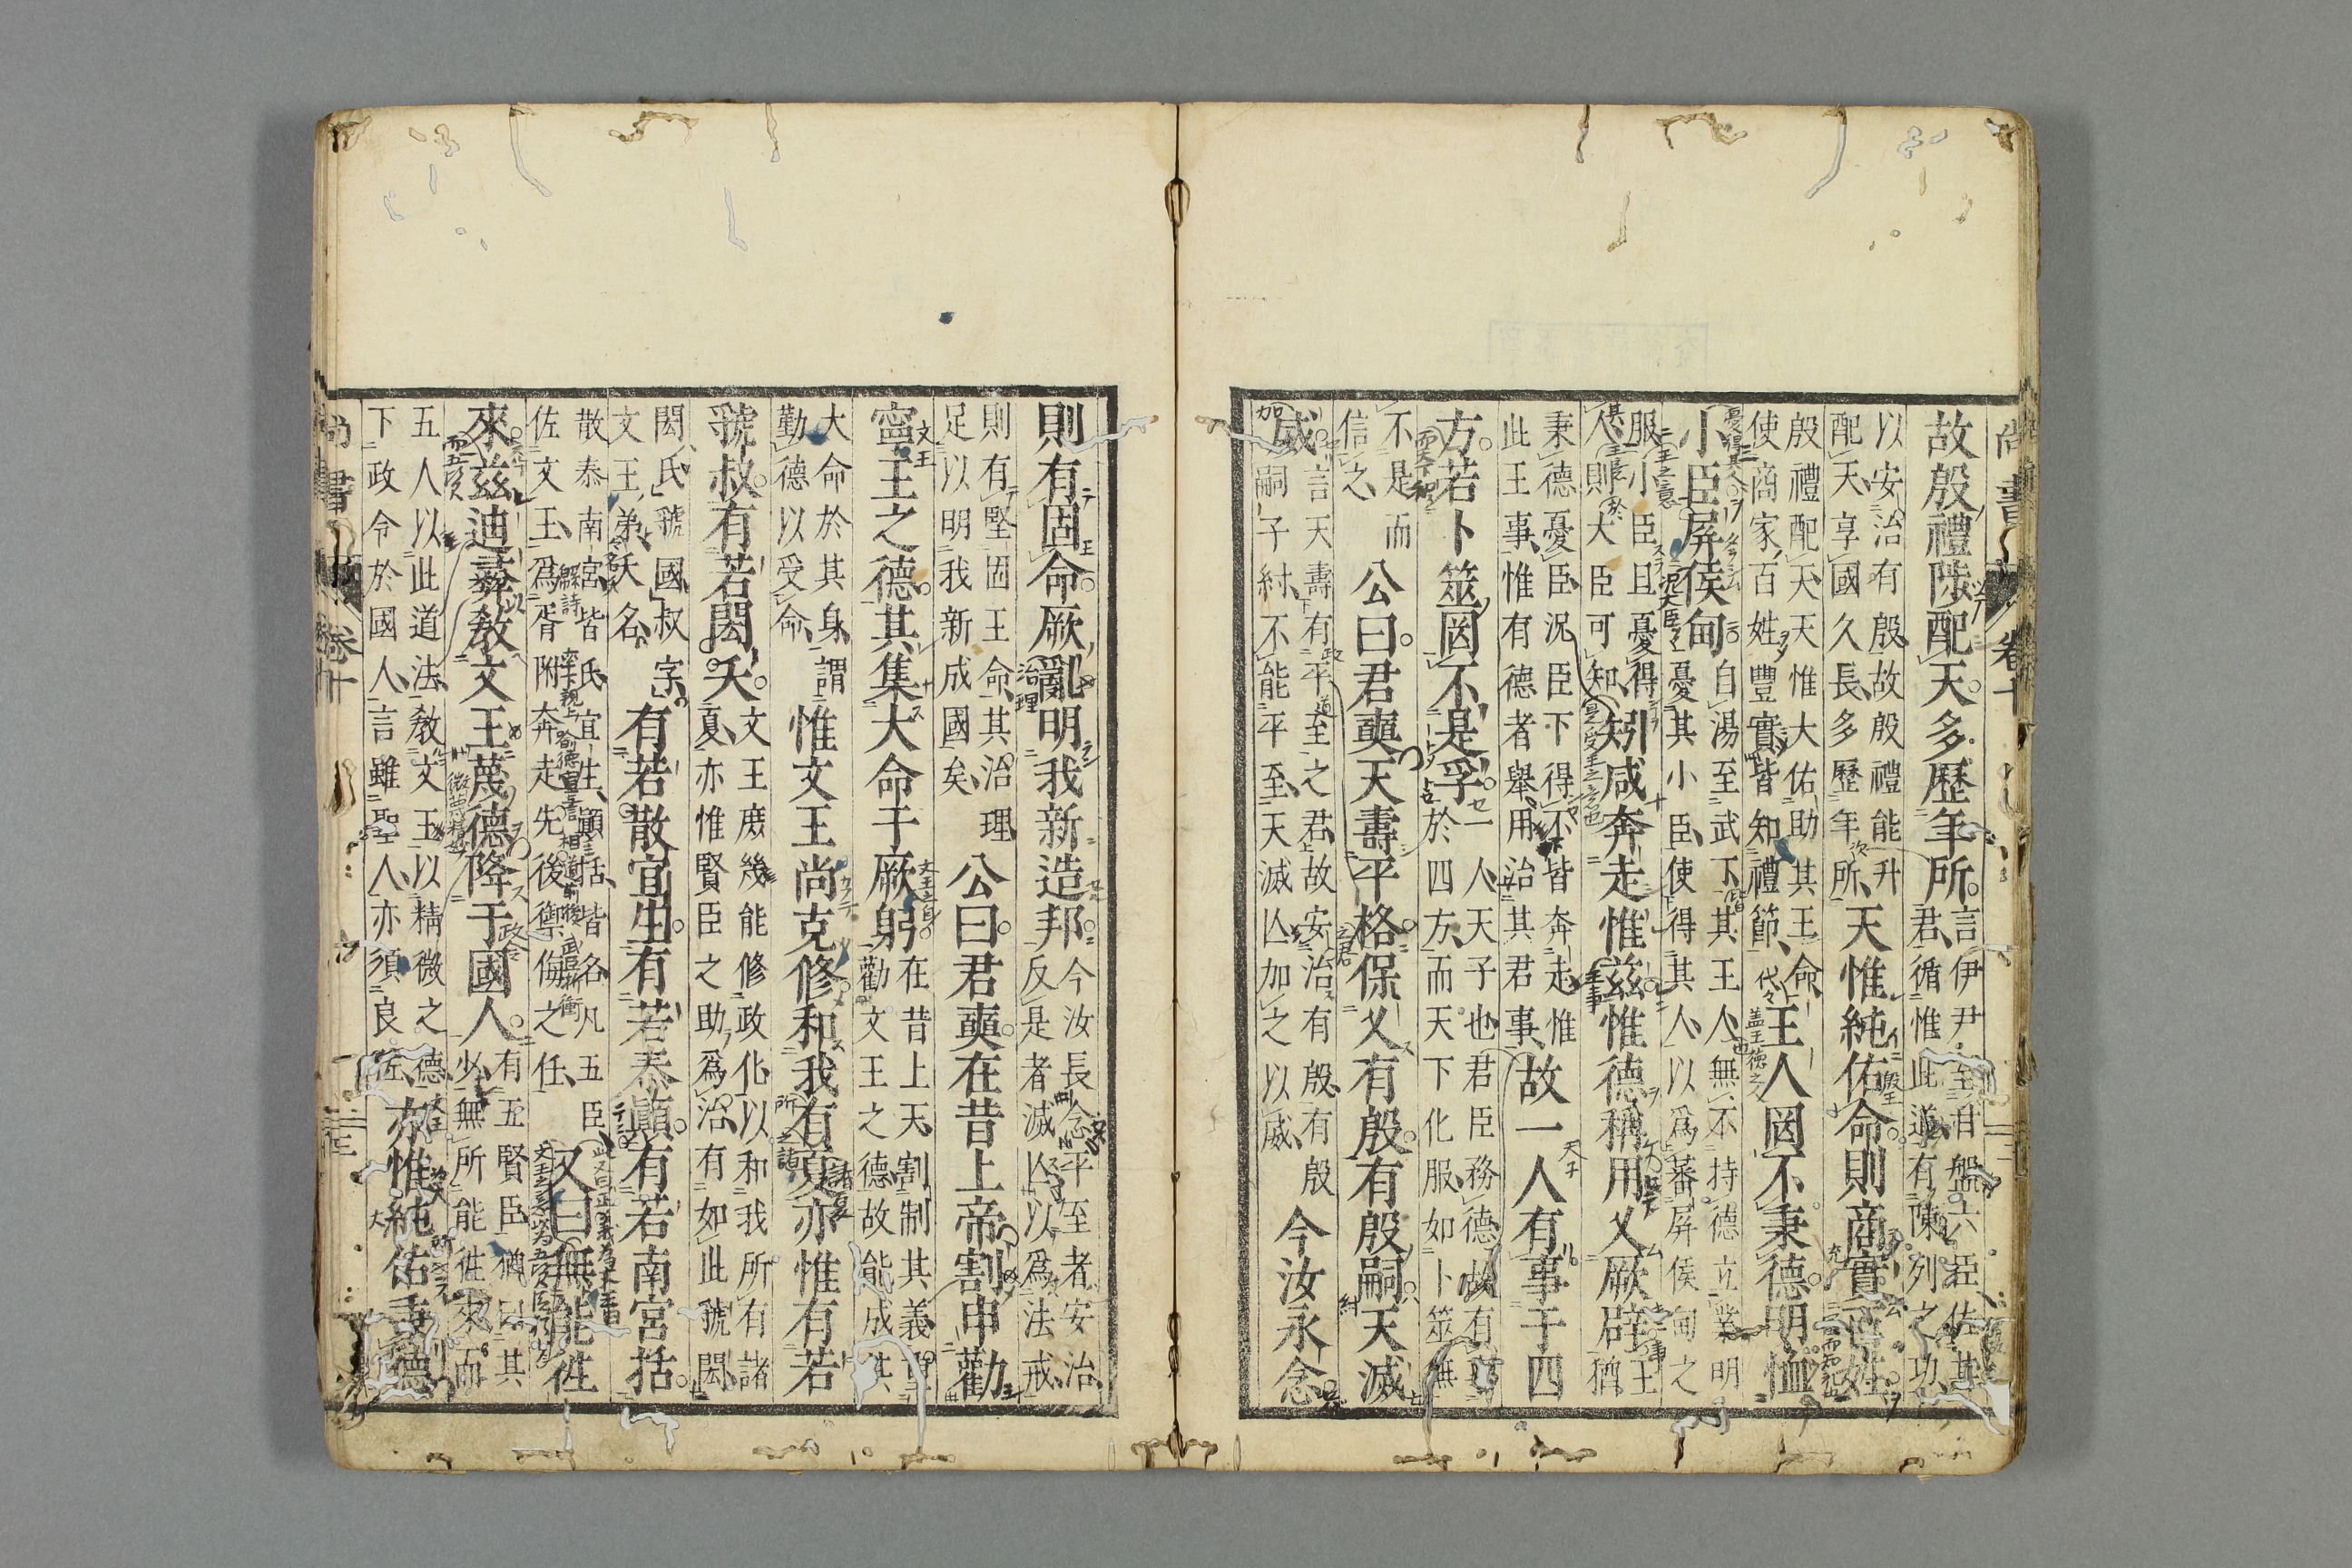 尚書 卷十
故殷禮陟配天多歷年所言伊尹至甘盤六臣佐其君循惟此道有陳列之功
以安治有殷故殷禮能升配天享國久長多歷年所天惟純佑命則商實百姓
殷禮配天天惟大佑助其王命使商家百姓豐實皆知禮節王人罔不秉德明恤
小臣屏侯甸自湯至武丁其王人無不持德立業明憂其小臣使得其人以為蕃屏侯甸之
服小臣且憂得人則大臣可知矧咸奔走惟茲惟德稱用乂厥辟王猶
秉德憂臣況臣下得不皆奔走惟此王事惟有德者舉用治其君事故一人有事于四
方若卜筮罔不是孚一人天子也君臣務德故有事於四方而天下化服如卜筮無
不是而信之公曰君奭天壽平格保乂有殷有殷嗣天滅
威言天壽有平至之君故安治有殷有殷嗣子紂不能平至天滅亾加之以威今汝永念
則有固命厥亂明我新造邦今汝長念平至者安治反是者滅亾以為法戒
則有堅固王命其治理足以明我新成國矣公曰君奭在昔上帝割申勸
寧王之德其集大命于厥躬在昔上天割制其義重勸文王之德故能成其
大命於其身謂勤德以受命惟文王尚克修和我有夏亦惟有若
虢叔有若閎夭文王庶幾能修政化以和我所有諸夏亦惟賢臣之助為治有如此虢閎
閎氏虢國叔字文王弟夭名有若散宜生有若泰顛有若南宮括
散泰南宮皆氏宜生顛括皆名凡五臣佐文王為胥附奔走先後禦侮之任又曰無能往
來茲迪彝教文王蔑德降于國人有五賢臣猶曰其少無所能往來而
五人以此道法教文王以精微之德下政令於國人言雖聖人亦須良佐亦惟純佑秉德
尚書 卷十